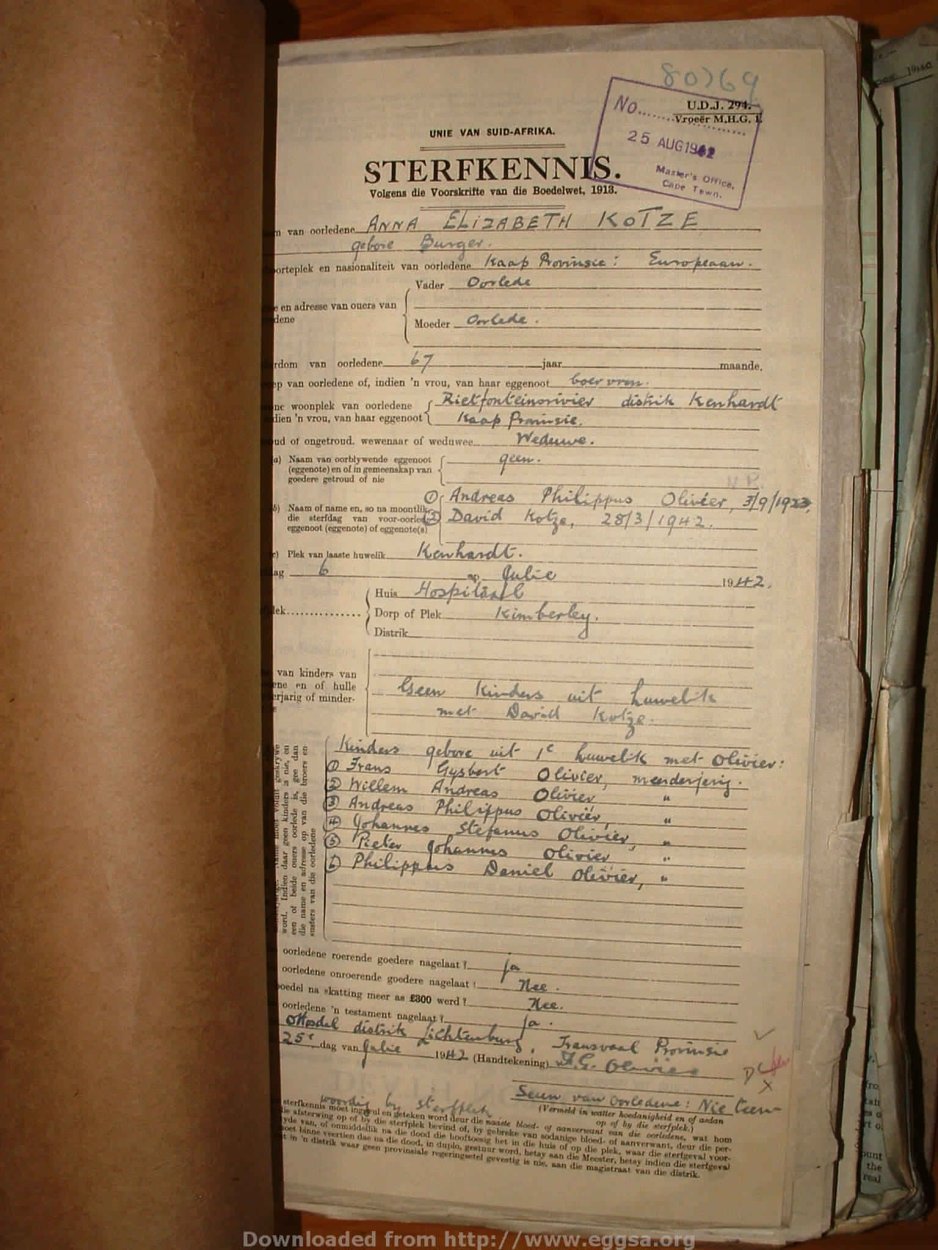 80769
U.D.J. 294.
Vroeër M.H.G. 1.
No.
25 AUG 1942
Master's Office,
Cape Town.
UNIE VAN SUID-AFRIKA.
STERFKENNIS.
Volgens die Voorskrifte van die Boedelwet, 1913.
van oorledene ANNA ELIZABETH KOTZE
gebore Burger.
oorteplek en nasionaliteit van oorledene Kaap Provinsie : Europeaan.
Vader Oorlede
e en adresse van ouers van
dene
Moeder Oorlede.
rdom van oorledene 67 jaar maande,
ep van oorledene of, indien 'n vrou, van haar eggenoot boervrou.
ne woonplek van oorledene Rietfonteinsrivier distrik Kenhardt
dien 'n vrou, van haar eggenoot Kaap Provinsie.
ud of ongetroud, wewenaar of weduwee Weduwe.
a) Naam van oorblywende eggenoot geen.
(eggenote) en of in gemeenskap van
goedere getroud of nie
① Andreas Philippus Olivier, 3/9/1923,
b) Naam of name en, so na moontlik
die sterfdag van voor-oorlede ② David Kotze, 28/3/1942.
eggenoot (eggenote) of eggenote(s)
c) Plek van laaste huwelik Kenhardt.
ag 6 op Julie 1942.
Huis Hospitaal
lek Dorp of Plek Kimberley.
Distrik
van kinders van
ene en of hulle
erjarig of minder-
Geen Kinders uit huwelik
met David Kotze.
Kinders gebore uit 1e huwelik met Olivier:
① Frans Gysbert Olivier, meerderjarig.
② Willem Andreas Olivier "
③ Andreas Philippus Olivier, "
④ Johannes Stefanus Olivier, "
⑤ Pieter Johannes Olivier, "
⑥ Philippus Daniel Olivier, "
word. Indien daar geen kinders is nie, en
een of beide ouers oorlede is, gee dan
die name en adresse op van die broers en
susters van die oorledene
oorledene roerende goedere nagelaat ? Ja
oorledene onroerende goedere nagelaat ? Nee.
oedel na skatting meer as £300 werd ? Nee.
oorledene 'n testament nagelaat ? Ja.
Ottosdal distrik Lichtenburg, Transvaal Provinsie
25e dag van Julie 1942 (Handtekening) Olivier
Seun van Oorledene: Nie teen-
woordig by sterfplek
(Vermeld in watter hoedanigheid en of aldan
op of by die sterfplek.)
sterfkennis moet ingevul en geteken word deur die naaste bloed- of aanverwant van die oorledene, wat hom
die afsterwing op of by die sterfplek bevind of, by gebreke van sodanige bloed- of aanverwant, deur die per-
yde van, of onmiddellik na die dood die hooftoesig het in die huis of op die plek, waar die sterfgeval voor-
oet binne veertien dae na die dood, in duplo, gestuur word, hetsy aan die Meester, hetsy indien die sterfgeval
t in 'n distrik waar geen provinsiale regeringsetel gevestig is nie, aan die magistraat van die distrik.
Downloaded from http://www.eggsa.org